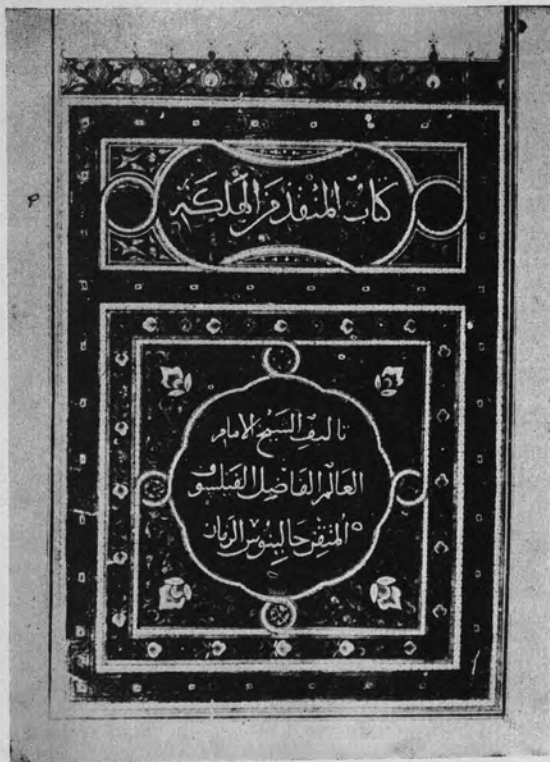 كتاب المنقذ من الهلكة
تاليف الشيخ الامام
العالم الفاضل الفيلسوف
المتقن جالينوس الزمان